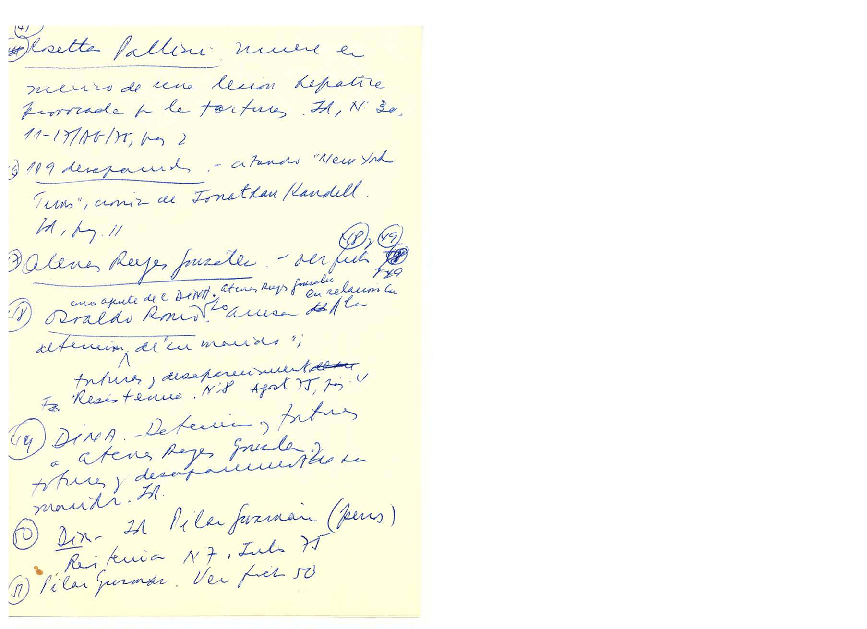 Rosetta Pallini muere en
de una lesion hepatica
provocada p la torturas. Id, Nº 30,
11-17/AG/75, pag 2
119 desaparecidos .- citando "New York
Times", cronica de Jonathan Kandell.
Id, pag. 11
48, 49
Atenas Reyes González .- ver ficha
agente de la DINA. Atenas Reyes González en relacion con
Osvaldo Romo. acusa a la
detencion de "su marido";
torturas y desaparecimiento
Resistencia. Nº8 Agost 75, pag.
49 DINA. Detencion y torturas
a Atenas Reyes González y
torturas y desaparecimiento de su
marido. Id.
50 Din - Id Pilar Guzmán (
Resistencia N 7, Julio 75
51 Pilar Guzman. Ver ficha 50